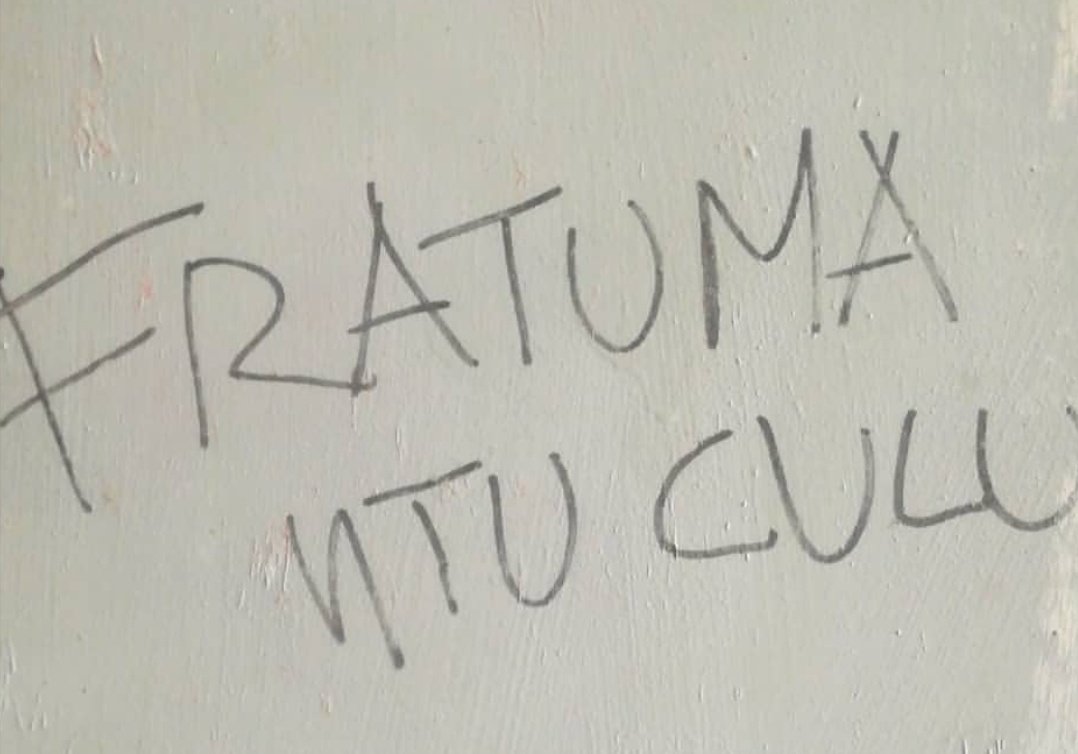 FRATUMA
NTU CULU